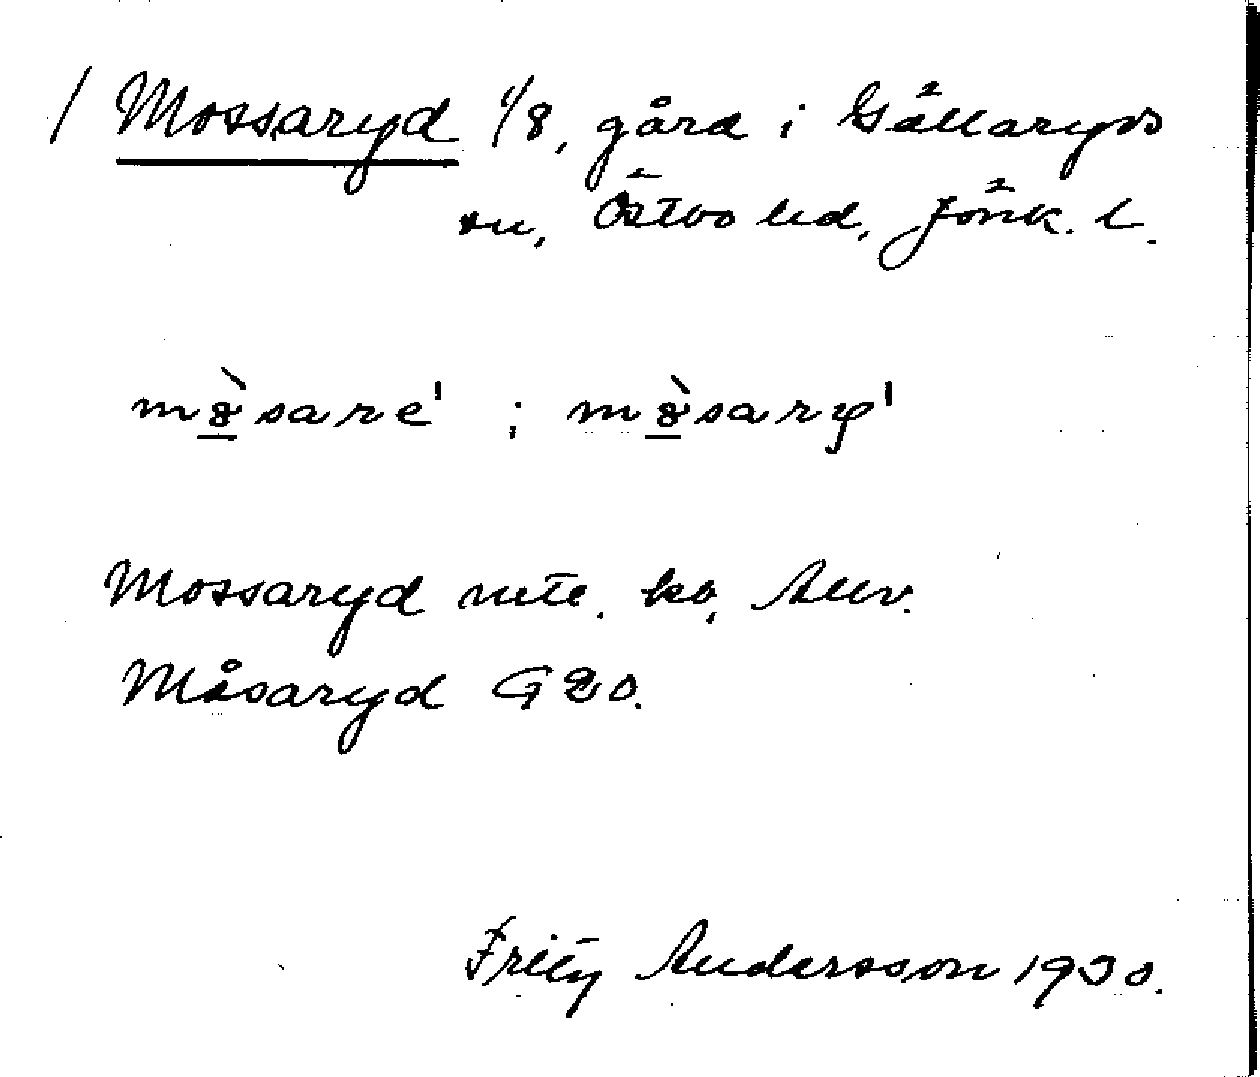 / Mossaryd 1/8, gård i Gällaryds
sn, Östbo hd, Jönk. l.
mòsare' ; mòsary'
Mossaryd uttc. ko, Allv.
Måsaryd GEO.
Fritz Andersson 1930.